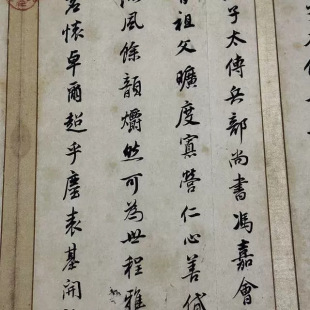 子太傅兵部尚書馮嘉會
祖父曠度寡營仁心善貸
風餘韻爝然可為世程雅
懷卓爾超乎塵表基開